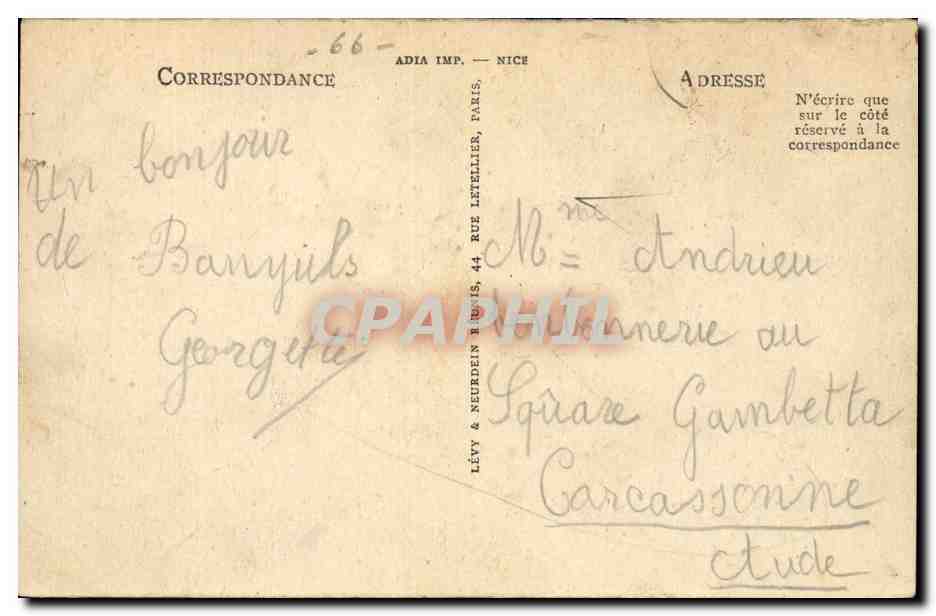 - 66 -
ADIA IMP. — NICE
CORRESPONDANCE
ADRESSE
N'écrire que
sur le côté
réservé à la
correspondance
Un bonjour
de Banyuls
Georgette
LÉVY & NEURDEIN RÉUNIS, 44 RUE LETELLIER, PARIS.
Mme Andrieu
au
Sqûare Gambetta
Carcassonne
Aude
CPAPHIL